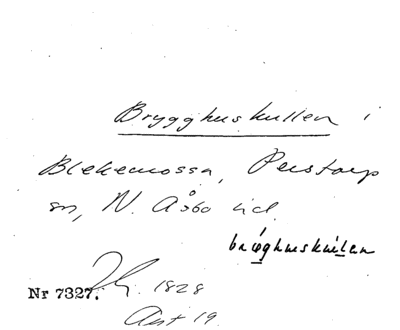 Brygghuskullen i
Blekemossa, Perstorp
sn, N. Åsbo hd.
Nr 7327.
1828
Akt 19